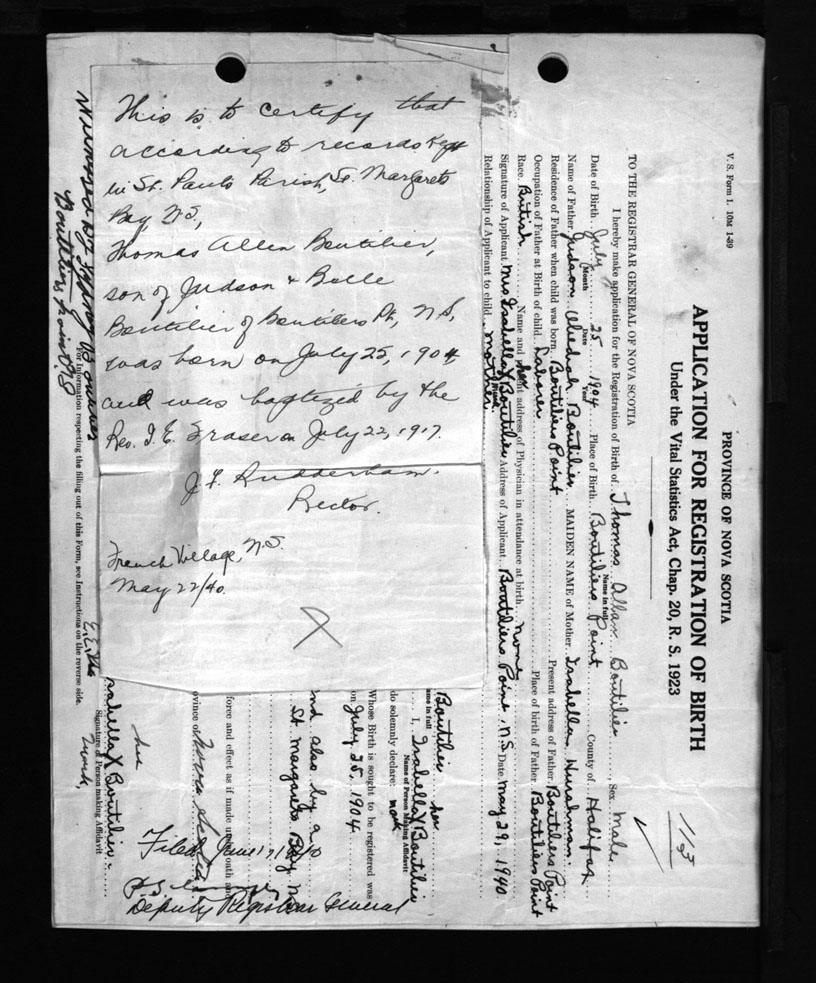 This is to certify that
according to records kept
in St. Pauls Parish, St. Margarets
Bay, N.S,
Thomas Allen Boutilier,
son of Judson & Belle
Boutilier of Boutiliers Pt, N.S,
was born on July 25, 1904
and was baptized by the
Rev. T. E. Fraser on July 22, 1917.
J. F. Rudderham.
Rector.
French Village, N.S.
May 22/40.
V. S. Form 1. 10M 1-39
PROVINCE OF NOVA SCOTIA
APPLICATION FOR REGISTRATION OF BIRTH
Under the Vital Statistics Act, Chap. 20, R. S. 1923
115
TO THE REGISTRAR GENERAL OF NOVA SCOTIA
I hereby make application for the Registration of Birth of Thomas Allan Boutilier Sex Male
Name in full
Date of Birth July 25 1904 Place of Birth Boutiliers Point County of Halifax
Month Date Year
Name of Father Judson Boutilier MAIDEN NAME of Mother Isabella
Residence of Father when child was born Boutiliers Point Present address of Father Boutiliers Point
Occupation of Father at Birth of child Laborer Place of birth of Father Boutiliers Point
Race British Name and present address of Physician in attendance at birth none
her
Signature of Applicant Mrs Isabella X Boutilier Address of Applicant Boutiliers Point, N.S Date May 29, 1940
mark
Relationship of Applicant to child Mother
Boutilier her
ame in full I, Isabella X Boutilier
Name of Person Making Affidavit
do solemnly declare: mark
Whose Birth is sought to be registered was
on July 25, 1904
nd also by a
St. Margarets Bay N
force and effect as if made under oath and
ovince of Nova Scotia
her
Isabella X Boutilier
Signature of Person making Affidavit
mark
Filed June 17, 1940
Deputy Registrar General
For Information respecting the filling out of this Form, see Instructions on the reverse side.
Witnessed by
Boutiliers Point N S